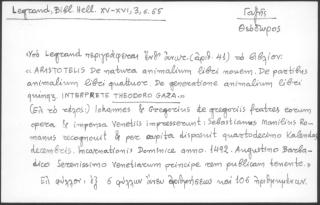 Legrand, Bibl. Hell. XV-XVI, 3, σ. 65
Γαζῆς
Θεόδωρος
Ὑπὸ Legrand περιγράφεται (ἀριθ. 41) τὸ βιβλίον:
« ARISTOTELIS De natura animalium libri novem. De partibus
animalium libri quattuor. De generatione animalium libri
quinque. INTERPRETE THEODORO GAZA.»
(Εἰς τὸ τέλος) Iohannes & Gregorius de gregoriis fratres eorum
opera & impensa Venetiis impresserunt: Sebastianus Manilius Ro-
manus recognouit & per capita disposuit quartodecimo Kalendas
decembris. Incarnationis Dominice anno. 1492. Augustino Barba-
dico Serenissimo Venetiarum principe rem publicam tenente.»
Εἰς φύλλον: ἐξ 6 φύλλων ἄνευ ἀριθμήσεως καὶ 106 ἠριθμημένων.